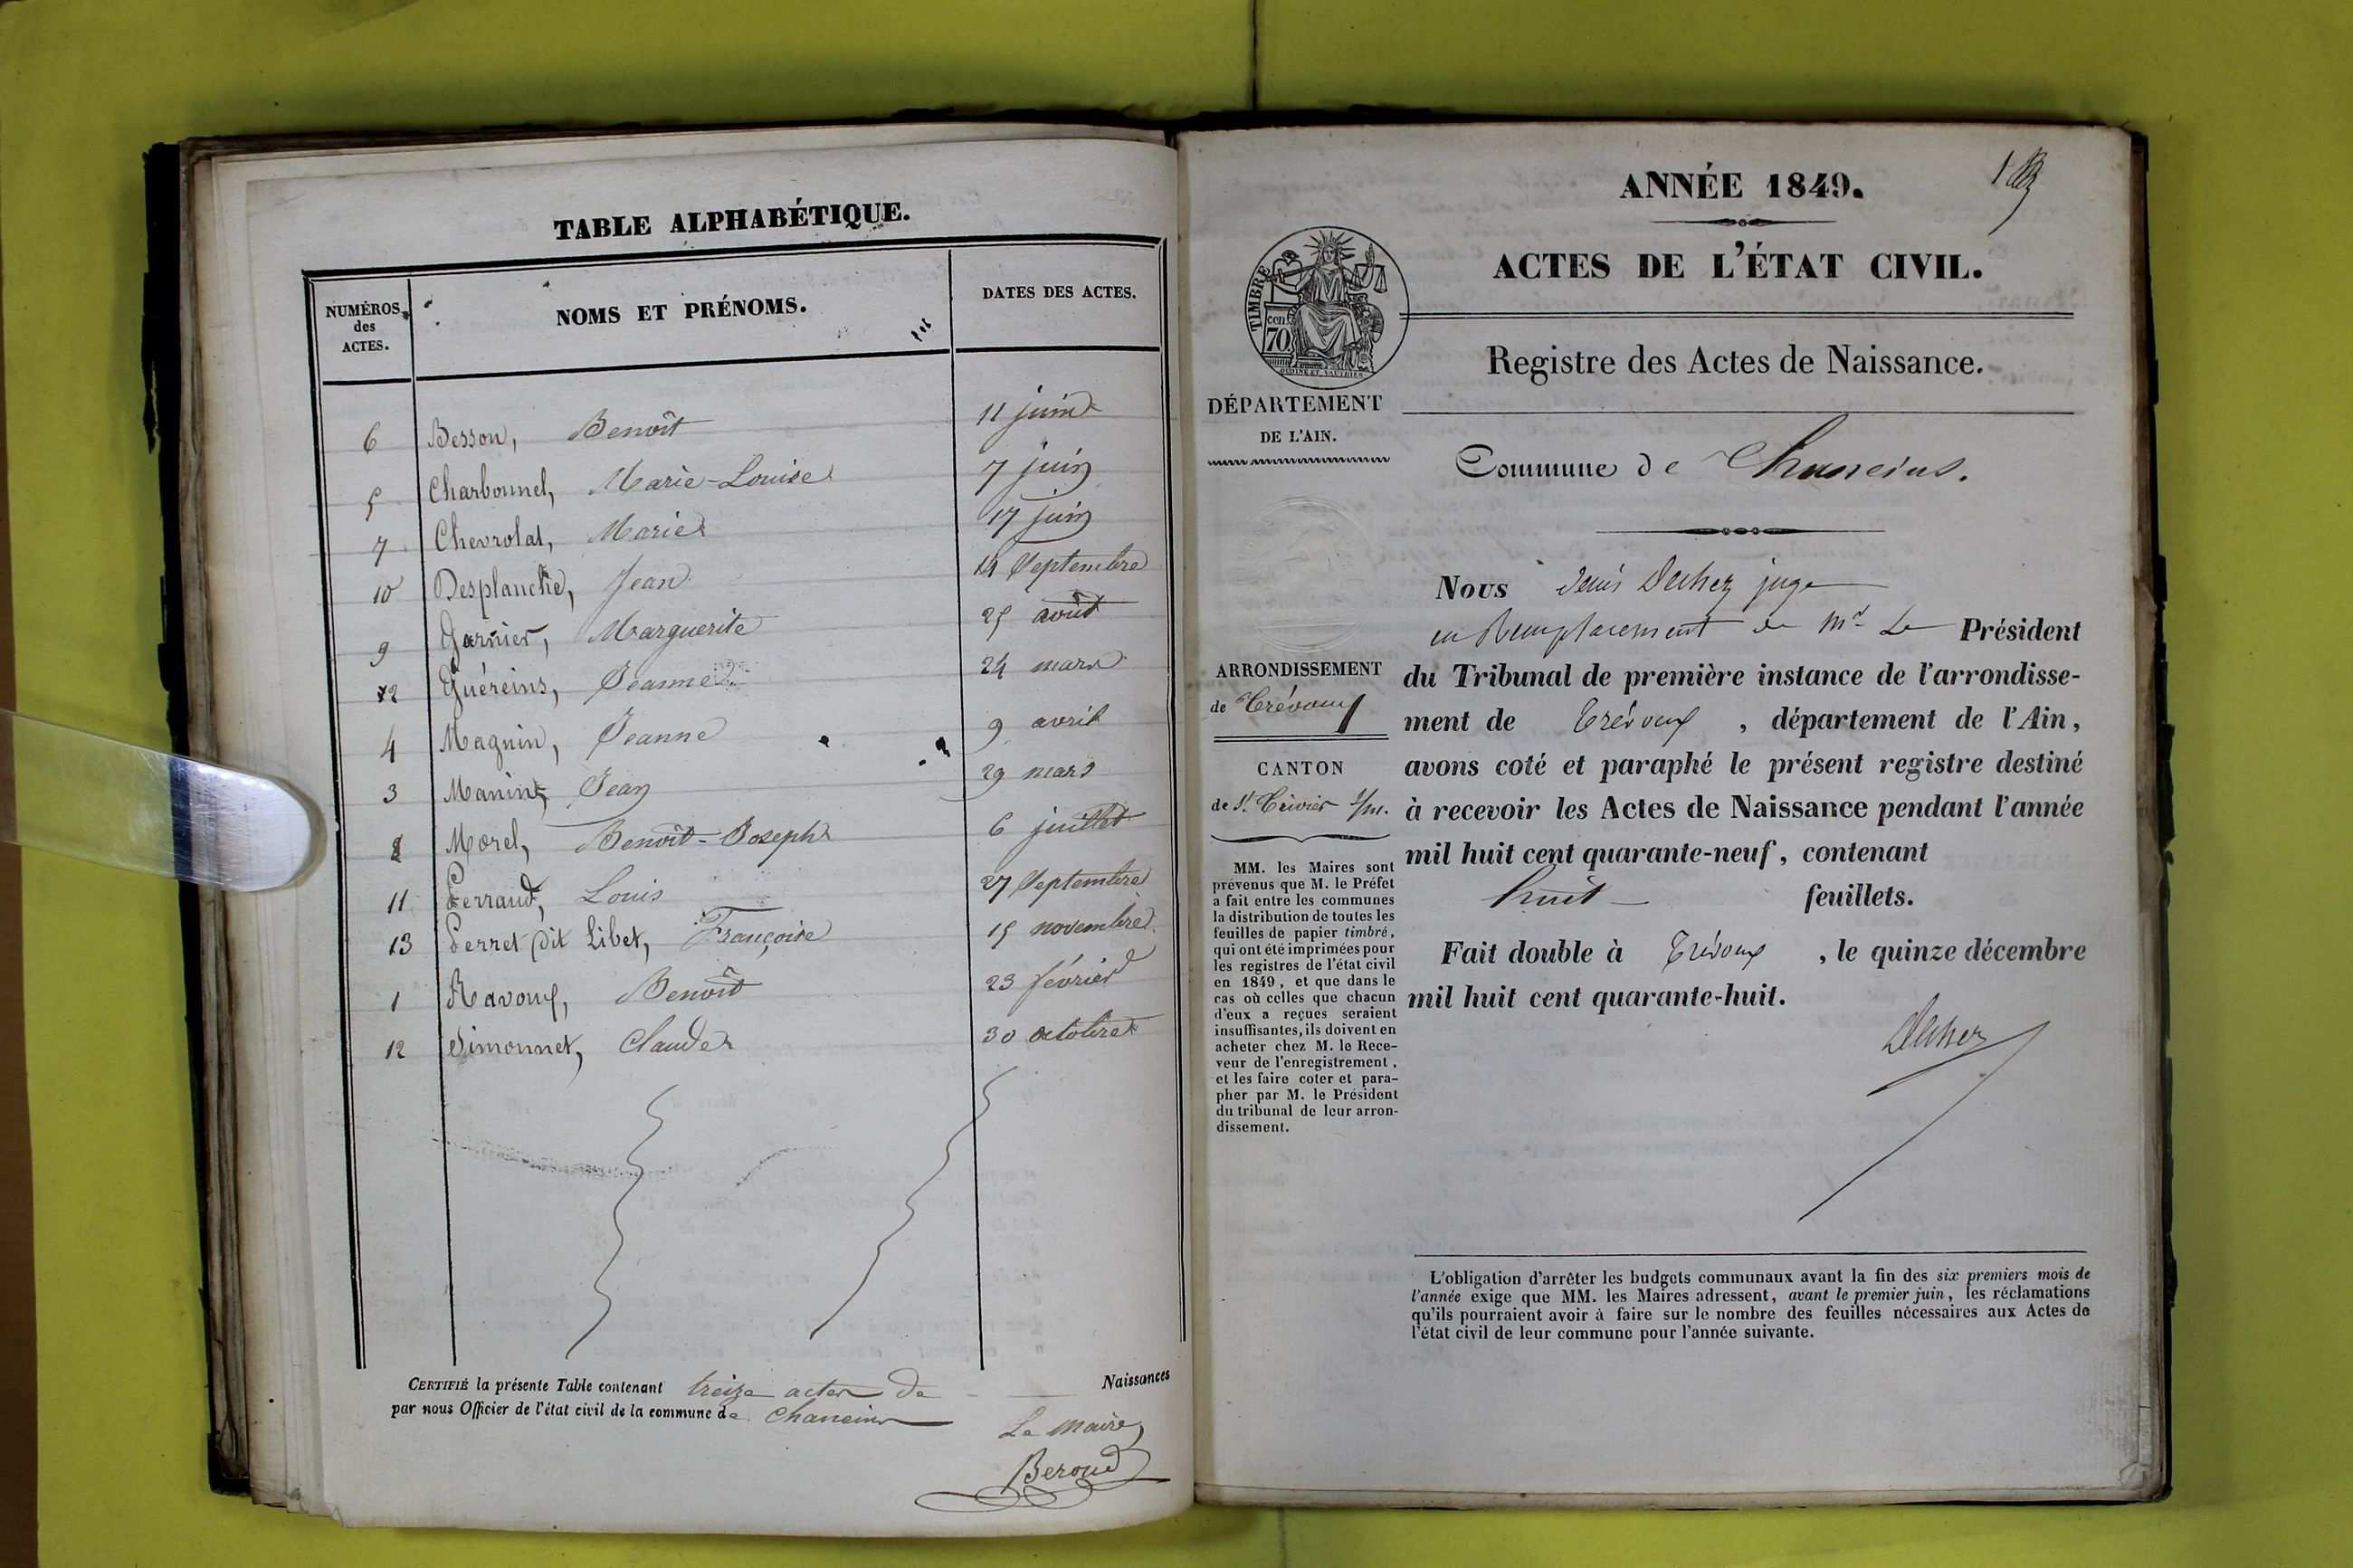 TABLE ALPHABÉTIQUE.
NUMÉROS des ACTES. NOMS ET PRÉNOMS. DATES DES ACTES.
6 Besson, Benoît 11 juin
5 Charbonnel, Marie-Louise 7 juin
7 Chevrolat, Marie 17 juin
10 Desplanche, Jean 14 Septembre
9 Garnier, Marguerite 25 août
2 Guéreins, Jeanne 24 mars
4 Magnin, Jeanne 9 avril
3 Manint, Jean 29 mars
8 Morel, Benoît-Joseph 6 juillet
11 Perraud, Louis 27 Septembre
13 Perret dit Libet, Françoise 15 novembre
1 Ravoux, Benoît 23 février
12 Simonnet, Claude 30 octobre
CERTIFIÉ la présente Table contenant treize actes de Naissances
par nous Officier de l'état civil de la commune de Chaneins
Le Maire
Beroud
ANNÉE 1849.
ACTES DE L'ÉTAT CIVIL.
TIMBRE
70
cen.
Registre des Actes de Naissance.
DÉPARTEMENT
DE L'AIN.
Commune de Chaneins.
Nous Denis Dechez juge
en Remplacement de Mr Le Président
ARRONDISSEMENT
de Trévoux
du Tribunal de première instance de l'arrondisse-
ment de Trévoux, département de l'Ain,
avons coté et paraphé le présent registre destiné
à recevoir les Actes de Naissance pendant l'année
mil huit cent quarante-neuf, contenant
huit feuillets.
Fait double à Trévoux, le quinze décembre
mil huit cent quarante-huit.
Dechez
CANTON
de St Trivier s/m.
MM. les Maires sont
prévenus que M. le Préfet
a fait entre les communes
la distribution de toutes les
feuilles de papier timbré,
qui ont été imprimées pour
les registres de l'état civil
en 1849, et que dans le
cas où celles que chacun
d'eux a reçues seraient
insuffisantes, ils doivent en
acheter chez M. le Rece-
veur de l'enregistrement,
et les faire coter et para-
pher par M. le Président
du tribunal de leur arron-
dissement.
L'obligation d'arrêter les budgets communaux avant la fin des six premiers mois de
l'année exige que MM. les Maires adressent, avant le premier juin, les réclamations
qu'ils pourraient avoir à faire sur le nombre des feuilles nécessaires aux Actes de
l'état civil de leur commune pour l'année suivante.